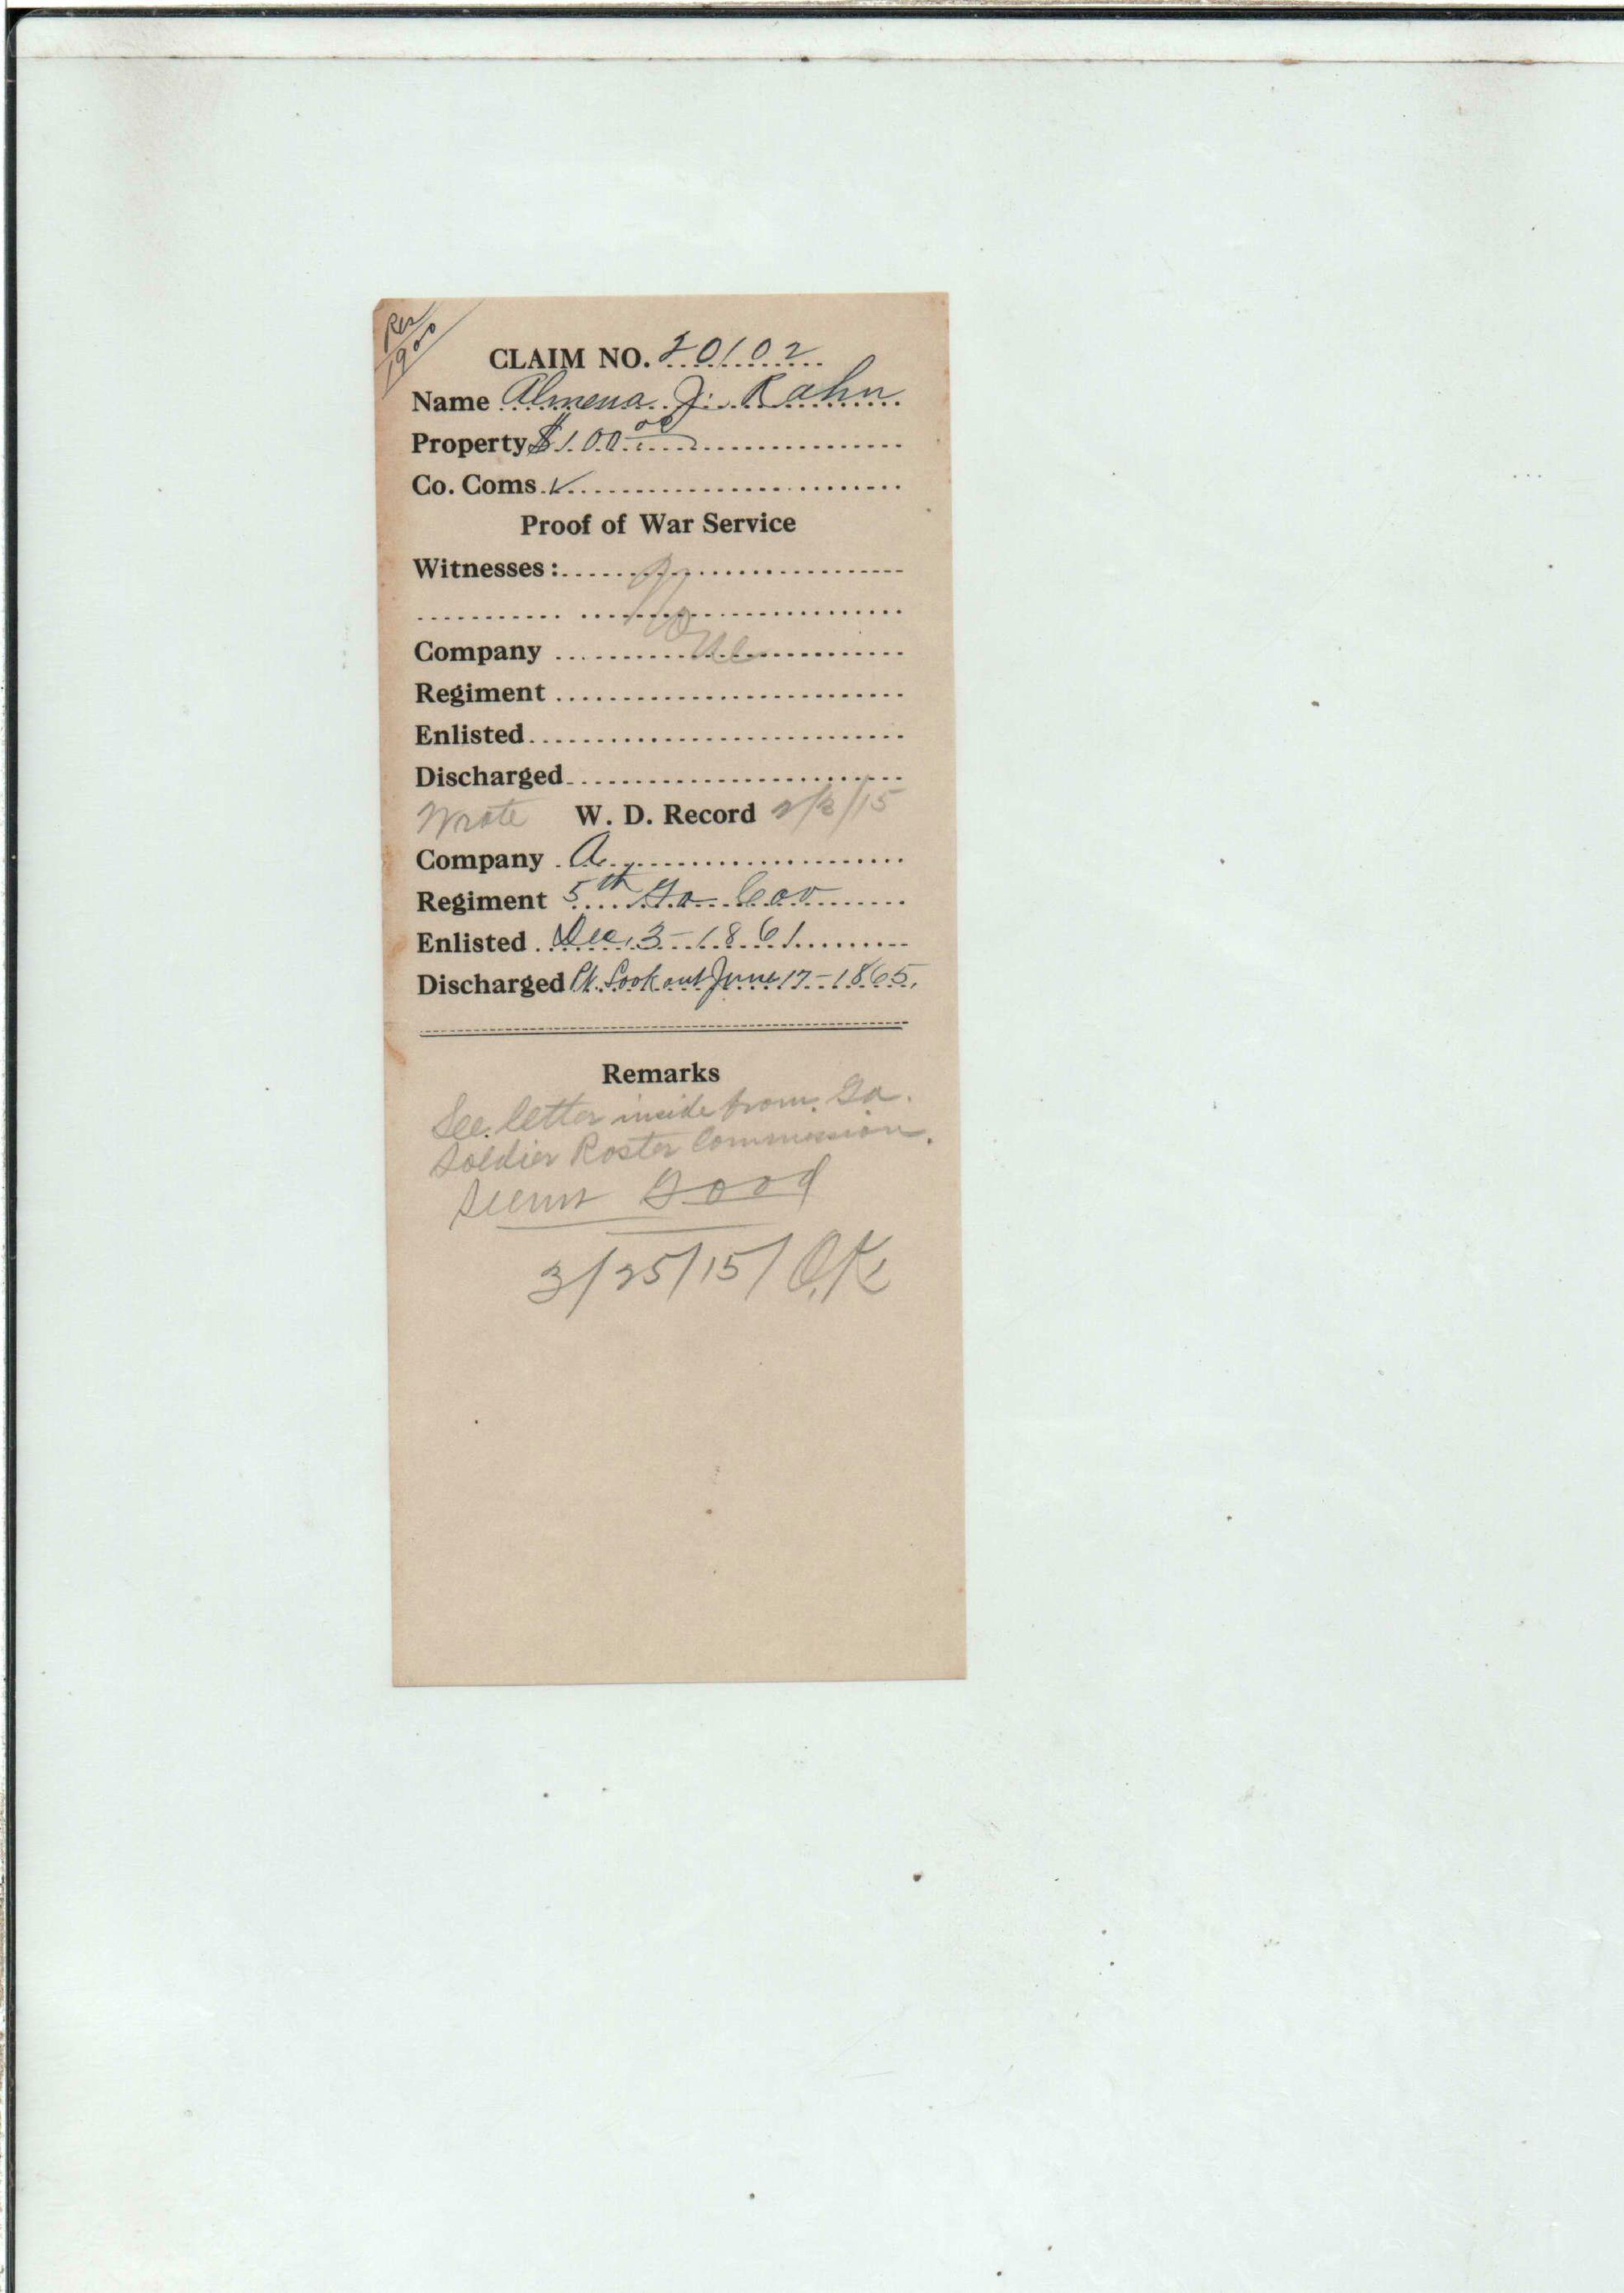 Res
1900
CLAIM NO. 20102
Name Almena J. Rahn
Property $100.00
Co. Coms. ✓
Proof of War Service
Witnesses:
None
Company
Regiment
Enlisted
Discharged
Wrote W. D. Record 2/2/15
Company A
Regiment 5th Ga Cav
Enlisted Dec. 3-1861
Discharged Pt. Lookout June 17-1865.
Remarks
See letter inside from Ga.
Soldier Roster Commission.
Seems Good
3/25/15/ O.K.